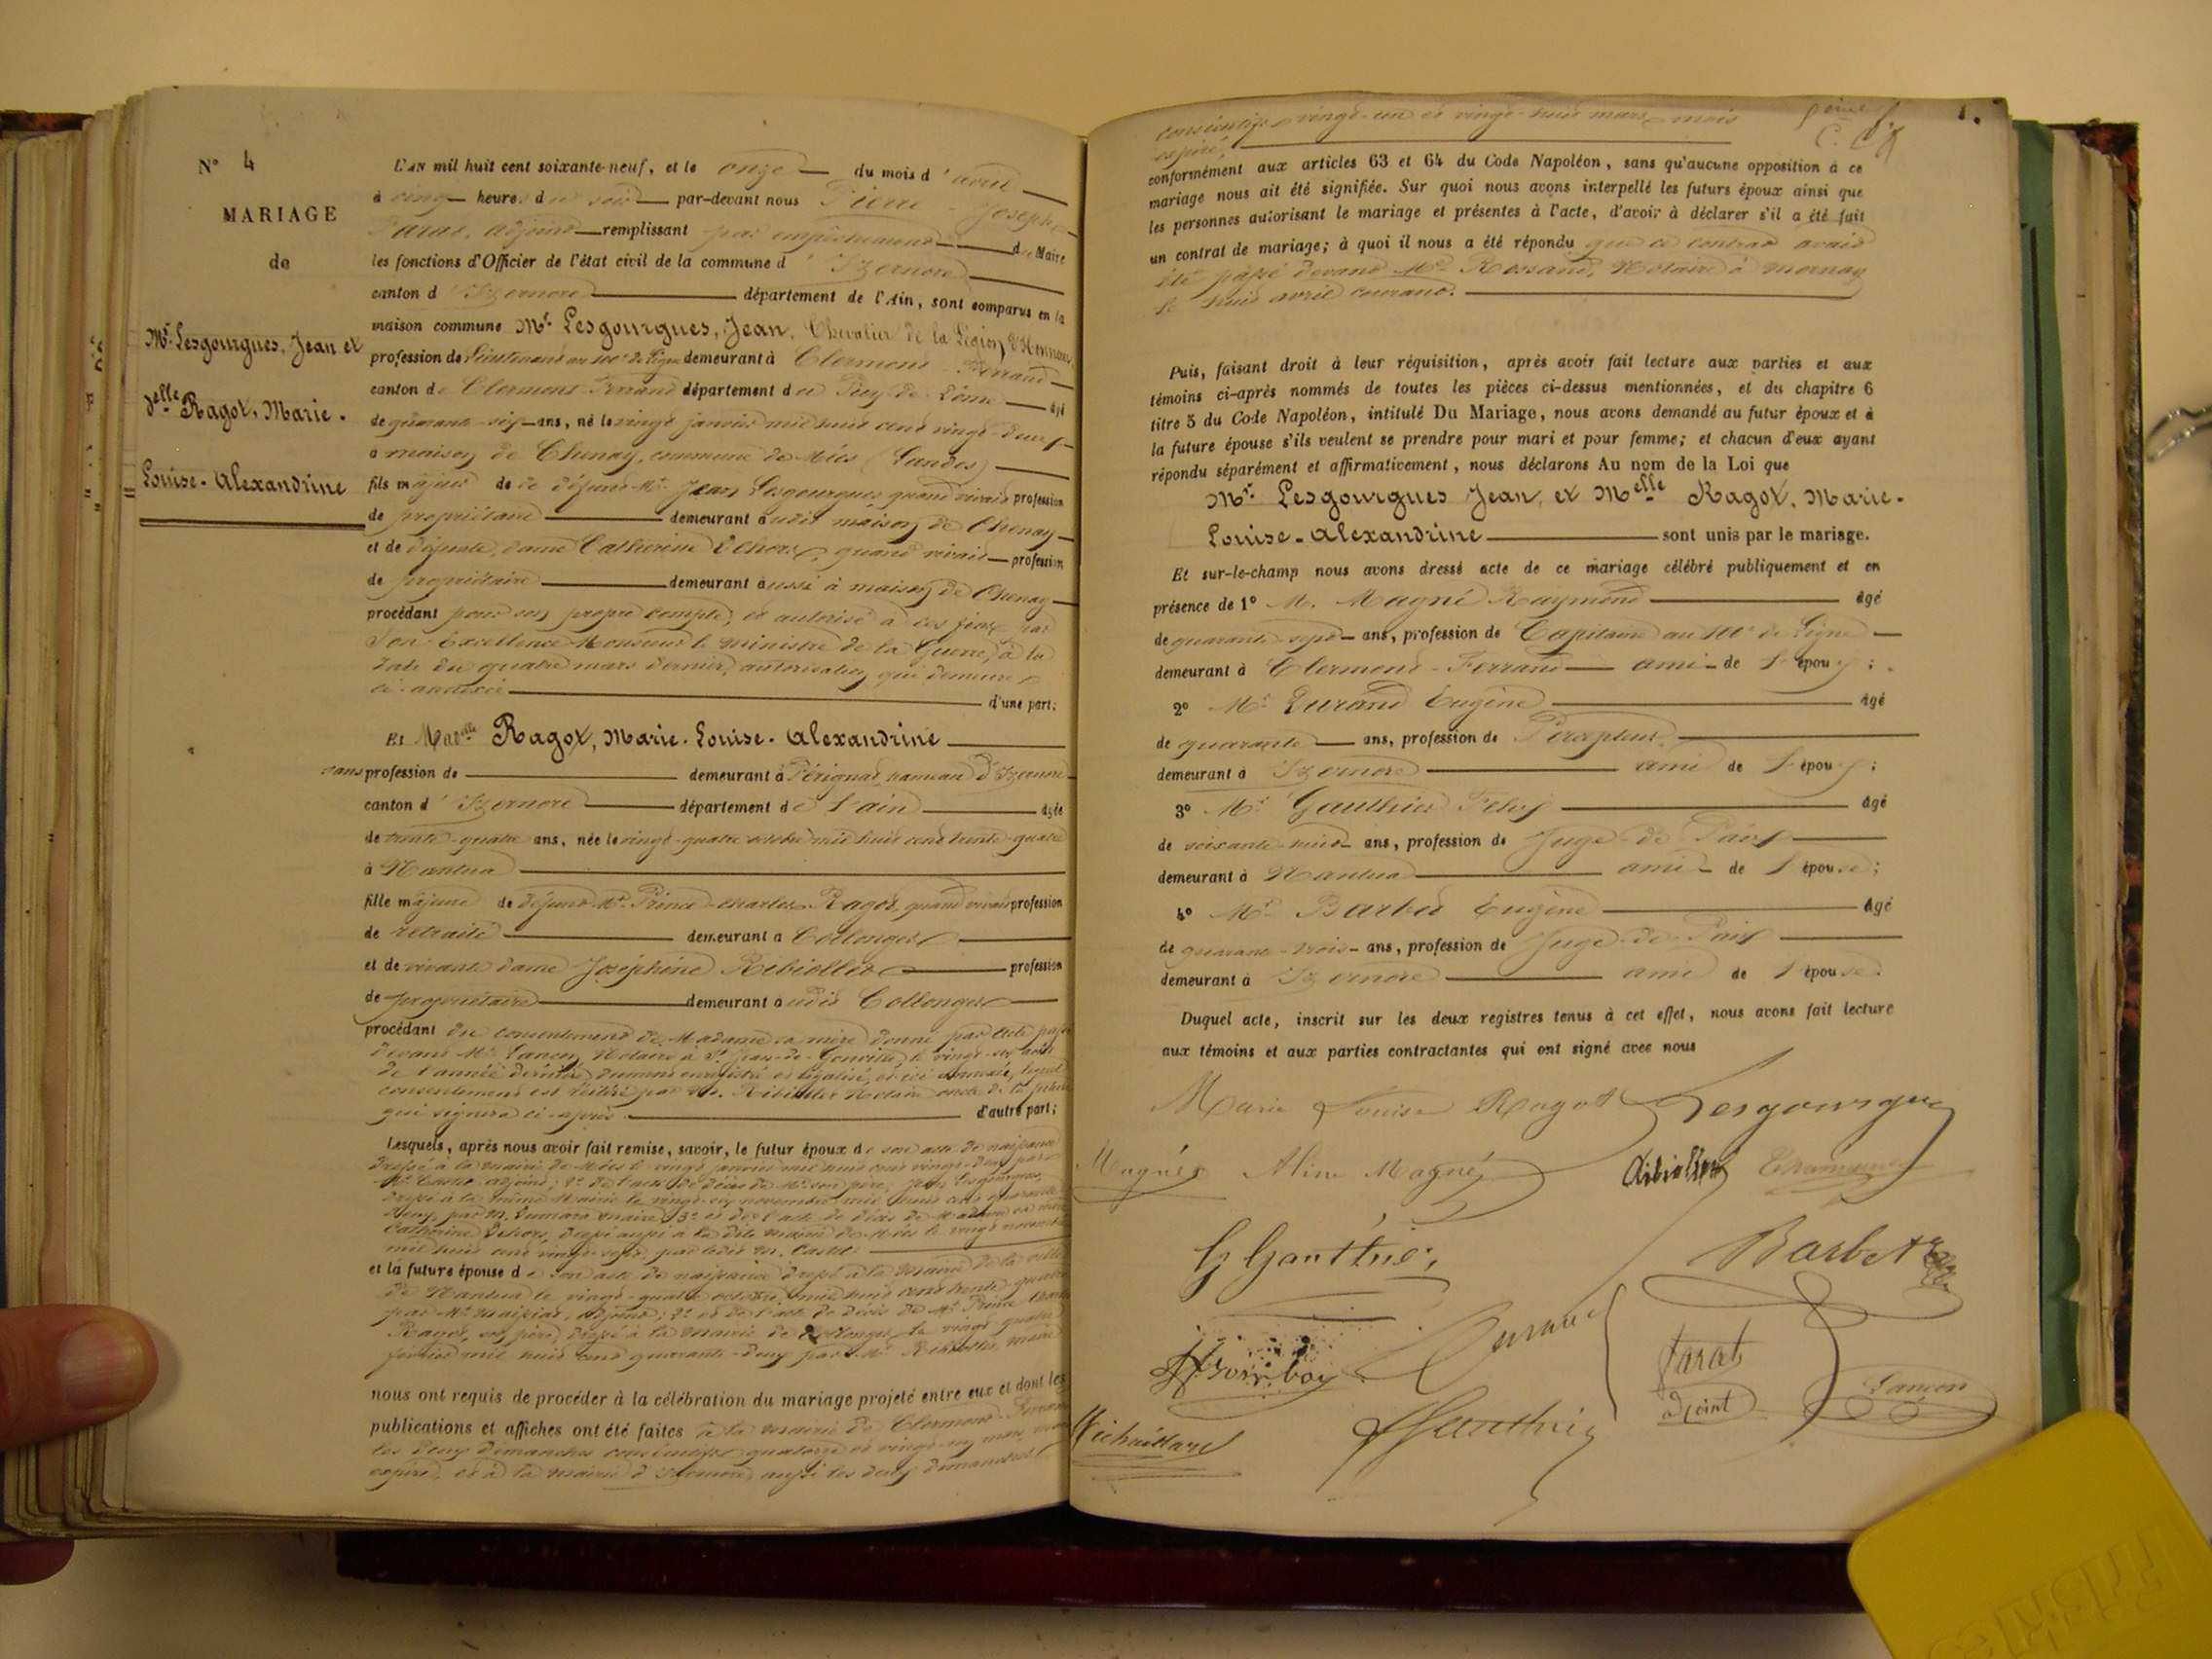 N° 4
MARIAGE
de
Mr. Lesgourgues, Jean et
Delle Ragot, Marie.
Louise-Alexandrine
L'AN mil huit cent soixante-neuf, et le onze du mois d'avril
à cinq heures du soir par-devant nous Pierre Joseph
Tarat, adjoint remplissant par empêchement du Maire
les fonctions d'Officier de l'état civil de la commune d'Izernore
canton d'Izernore département de l'Ain, sont comparus en la
maison commune Mr. Lesgourgues, Jean, Chevalier de la Légion d'Honneur
profession de Lieutenant au de Ligne demeurant à Clermont-Ferrand
canton de Clermont-Ferrand département du Puy-de-Dôme âgé
de quarante-six ans, né le vingt janvier mil huit cent vingt-deux
à maison de Chenay, commune de Mées (Landes)
fils majeur de défunt Mr. Jean Lesgourgues quand vivait profession
de propriétaire demeurant audit maison de Chenay
et de défunte, dame Catherine Dehors, quand vivait profession
de propriétaire demeurant aussi à maison de Chenay
procédant pour son propre compte, et autorisé à ces fins par
Son Excellence Monsieur le Ministre de la Guerre, à la
date du quatre mars dernier, autorisation qui demeure
ci-annexée d'une part;
Et Madelle Ragot, Marie-Louise-Alexandrine
sans profession de demeurant à Pérignat hameau d'Izernore
canton d'Izernore département de l'Ain âgée
de trente-quatre ans, née le vingt-quatre octobre mil huit cent trente-quatre
à Nantua
fille majeure de défunt Mr. Prince-Charles Ragot, quand vivait profession
de retraité demeurant à Collonges
et de vivante dame Joséphine Ribiollet profession
de propriétaire demeurant audit Collonges
procédant du consentement de Madame sa mère donné par acte passé
devant Me. Lançon, Notaire à St. Jean-de-Gonville, le vingt-six août
de l'année dernière, dument enregistré et légalisé, et ici annexé, lequel
consentement est réitéré par Me. Ribiollet Notaire oncle de la future
qui signera ci-après. d'autre part;
Lesquels, après nous avoir fait remise, savoir, le futur époux de son acte de naissance
dressé à la mairie de Mées le vingt janvier mil huit cent vingt-deux par
Mr. Castet adjoint; 2° de l'acte de décès de Mr. son père, Jean Lesgourgues,
dressé à la même Mairie le vingt-six novembre mil huit cent quarante
deux, par M. maire; 3° et de l'acte de décès de Madame sa mère
Catherine Dehors, dressé aussi à la dite mairie de Mées le vingt novembre
mil huit cent vingt-sept, par ledit M. Castet.
et la future épouse de son acte de naissance dressé à la Mairie de la ville
de Nantua le vingt-quatre octobre mil huit cent trente quatre
par Mr. adjoint; 2° et de l'acte de décès de Mr. Prince Charles
Ragot, son père, dressé à la mairie de Collonges le vingt quatre
février mil huit cent quarante-deux par Mr. Ribiollet, maire
nous ont requis de procéder à la célébration du mariage projeté entre eux et dont les
publications et affiches ont été faites à la mairie de Clermont-Ferrand
les deux dimanches consécutifs quatorze et vingt-un mars mois
expiré, et à la mairie d'Izernore, aussi les deux dimanches
consécutifs vingt-un et vingt-huit mars mois
expiré
conformément aux articles 63 et 64 du Code Napoléon, sans qu'aucune opposition à ce
mariage nous ait été signifiée. Sur quoi nous avons interpellé les futurs époux ainsi que
les personnes autorisant le mariage et présentes à l'acte, d'avoir à déclarer s'il a été fait
un contrat de mariage; à quoi il nous a été répondu que ce contrat avait
été passé devant Me. Rossand, Notaire à Mornay
le huit avril courant.
Puis, faisant droit à leur réquisition, après avoir fait lecture aux parties et aux
témoins ci-après nommés de toutes les pièces ci-dessus mentionnées, et du chapitre 6
titre 5 du Code Napoléon, intitulé Du Mariage, nous avons demandé au futur époux et à
la future épouse s'ils veulent se prendre pour mari et pour femme; et chacun d'eux ayant
répondu séparément et affirmativement, nous déclarons Au nom de la Loi que
Mr. Lesgourgues Jean, et Melle Ragot, Marie-
Louise-Alexandrine sont unis par le mariage.
Et sur-le-champ nous avons dressé acte de ce mariage célébré publiquement et en
présence de 1° M. Magné Raymond âgé
de quarante-sept ans, profession de Capitaine au de Ligne
demeurant à Clermont-Ferrand ami de l'époux;
2° Mr. Durand Eugène âgé
de quarante ans, profession de Percepteur
demeurant à Izernore ami de l'époux;
3° Mr. Gauthier Félix âgé
de soixante-huit ans, profession de Juge de Paix
demeurant à Nantua ami de l'épouse;
4° Mr. Barbet Eugène âgé
de quarante-trois ans, profession de Juge-de-Paix
demeurant à Izernore ami de l'épouse.
Duquel acte, inscrit sur les deux registres tenus à cet effet, nous avons fait lecture
aux témoins et aux parties contractantes qui ont signé avec nous
Marie Louise Ragot Lesgourgues
Magné Aline Magné Ribiollet
G Gauthier Barbet
Durand Tarat
adjoint Lançon
Michaillard F Gauthier